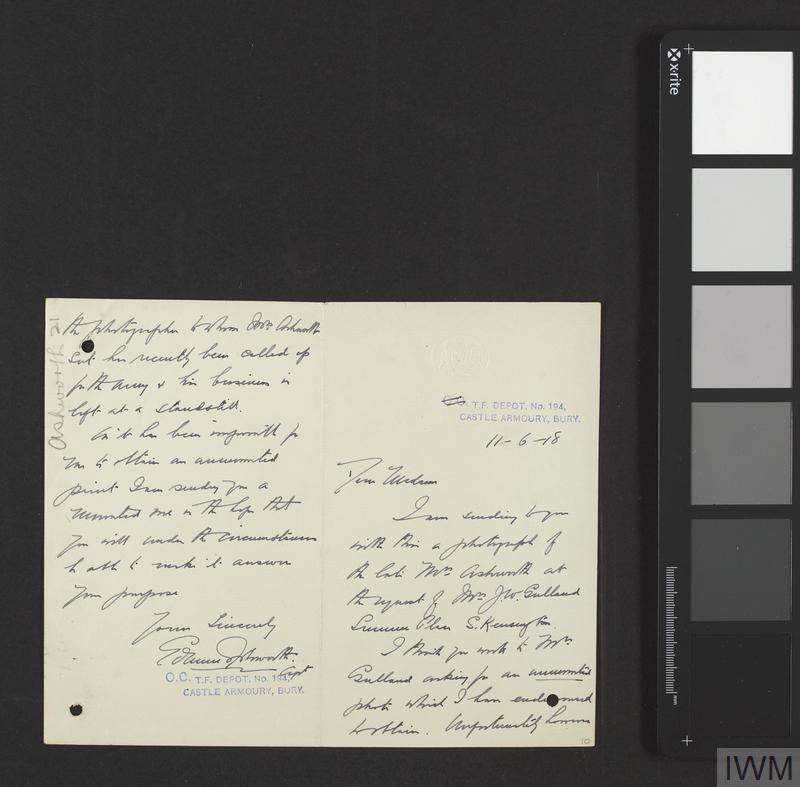 O.C. T.F. DEPOT. No. 194,
CASTLE ARMOURY, BURY.
11-6-18
Dear Madam
I am sending to you
with this a photograph of
the late Mrs Ashworth at
the request of Mrs J.W. Gulland
Sumner Place S. Kensington.
I think you wrote to Mrs
Gulland asking for an unmounted
photo which I have endeavoured
to obtain. Unfortunately however
the photographer to whom Mrs Ashworth
sat has recently been called up
for the army & his business is
left at a standstill.
As it has been impossible for
me to obtain an unmounted
print I am sending you a
mounted one in the hope that
you will under the circumstances
be able to make it answer
your purpose
Yours Sincerely
Ashworth.
Capt
O.C. T.F. DEPOT. No. 194,
CASTLE ARMOURY, BURY.
Ashworth 21
10
x·rite
mm
IWM